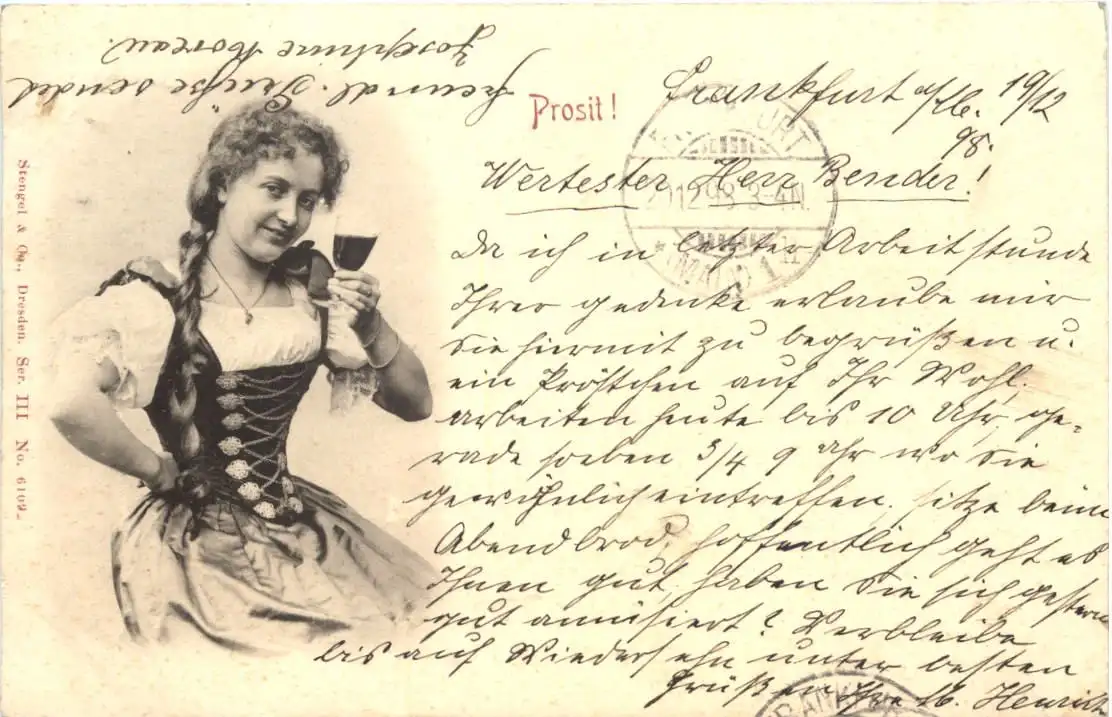 Prosit!
Frankfurt a/M. 19/12
98.
Wertester Herr Bender!
Da ich in letzter Arbeitstunde
Ihrer gedenke erlaube mir
Sie hiermit zu begrüßen u.
ein Pröstchen auf Ihr Wohl.
arbeiten heute bis 10 Uhr, ge-
rade soeben 3/4 9 Uhr wo Sie
gewöhnlich eintreffen. sitze beim
Abendbrod, hoffentlich geht es
Ihnen gut, haben Sie sich gestern
gut amüsiert? Verbleibe
bis auf Wiedersehn unter besten
Grüßen Ihre M. Henrich
freundl. Grüße sendet
Josephine Moreau.
Stengel & Co., Dresden. Ser. III No. 6109.
FRANKFURT
20.12.98 3-4N.
* (MAIN) 1
FRANKFU